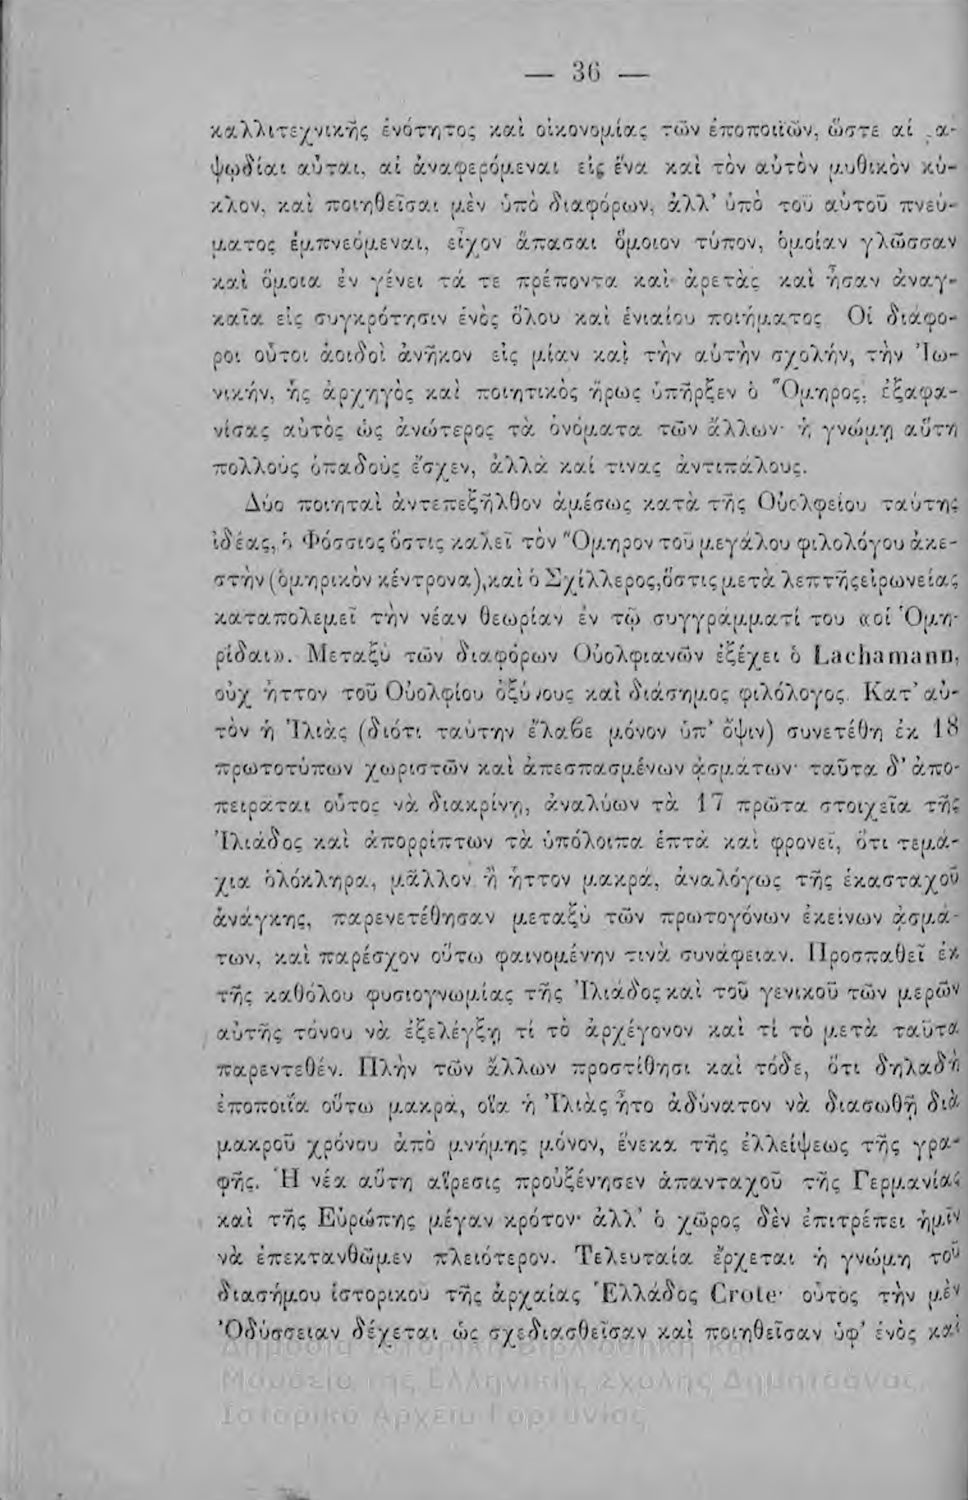 — 36 —
καλλιτεχνικῆς ἑνότητος καὶ οἰκονομίας τῶν ἐποποιϊῶν, ὥστε αἱ ῥα-
ψῳδίαι αὗται, αἱ ἀναφερόμεναι εἰς ἕνα καὶ τὸν αὐτὸν μυθικὸν κύ-
κλον, καὶ ποιηθεῖσαι μὲν ὑπὸ διαφόρων, ἀλλ' ὑπὸ τοῦ αὐτοῦ πνεύ-
ματος ἐμπνεόμεναι, εἶχον ἅπασαι ὅμοιον τύπον, ὁμοίαν γλῶσσαν
καὶ ὅμοια ἐν γένει τά τε πρέποντα καὶ ἀρετὰς καὶ ἦσαν ἀναγ-
καῖα εἰς συγκρότησιν ἑνὸς ὅλου καὶ ἑνιαίου ποιήματος Οἱ διάφο-
ροι οὗτοι ἀοιδοὶ ἀνῆκον εἰς μίαν καὶ τὴν αὐτὴν σχολήν, τὴν Ἰω-
νικήν, ἧς ἀρχηγὸς καὶ ποιητικὸς ἥρως ὑπῆρξεν ὁ Ὅμηρος, ἐξαφα-
νίσας αὐτὸς ὡς ἀνώτερος τὰ ὀνόματα τῶν ἄλλων· ἡ γνώμη αὕτη
πολλοὺς ὀπαδοὺς ἔσχεν, ἀλλὰ καί τινας ἀντιπάλους.
Δύο ποιηταὶ ἀντεπεξῆλθον ἀμέσως κατὰ τῆς Οὐολφείου ταύτης
ἰδέας, ὁ Φόσσιος ὅστις καλεῖ τὸν Ὅμηρον τοῦ μεγάλου φιλολόγου ἀκε-
στὴν (ὁμηρικὸν κέντρονα), καὶ ὁ Σχίλλερος, ὅστις μετὰ λεπτῆς εἰρωνείας
καταπολεμεῖ τὴν νέαν θεωρίαν ἐν τῷ συγγράμματί του «οἱ Ὁμη-
ρίδαι». Μεταξὺ τῶν διαφόρων Οὐολφιανῶν ἐξέχει ὁ Lachamann,
οὐχ ἧττον τοῦ Οὐολφίου ὀξύνους καὶ διάσημος φιλόλογος. Κατ' αὐ-
τὸν ἡ Ἰλιὰς (διότι ταύτην ἔλαβε μόνον ὑπ' ὄψιν) συνετέθη ἐκ 18
πρωτοτύπων χωριστῶν καὶ ἀπεσπασμένων ᾀσμάτων· ταῦτα δ' ἀπο-
πειρᾶται οὗτος νὰ διακρίνῃ, ἀναλύων τὰ 17 πρῶτα στοιχεῖα τῆς
Ἰλιάδος καὶ ἀπορρίπτων τὰ ὑπόλοιπα ἑπτὰ καὶ φρονεῖ, ὅτι τεμά-
χια ὁλόκληρα, μᾶλλον ἢ ἧττον μακρά, ἀναλόγως τῆς ἑκασταχοῦ
ἀνάγκης, παρενετέθησαν μεταξὺ τῶν πρωτογόνων ἐκείνων ᾀσμά-
των, καὶ παρέσχον οὕτω φαινομένην τινὰ συνάφειαν. Προσπαθεῖ ἐκ
τῆς καθόλου φυσιογνωμίας τῆς Ἰλιάδος καὶ τοῦ γενικοῦ τῶν μερῶν
αὐτῆς τόνου νὰ ἐξελέγξῃ τί τὸ ἀρχέγονον καὶ τί τὸ μετὰ ταῦτα
παρεντεθέν. Πλὴν τῶν ἄλλων προστίθησι καὶ τόδε, ὅτι δηλαδὴ
ἐποποιΐα οὕτω μακρά, οἵα ἡ Ἰλιὰς ἦτο ἀδύνατον νὰ διασωθῇ διὰ
μακροῦ χρόνου ἀπὸ μνήμης μόνον, ἕνεκα τῆς ἐλλείψεως τῆς γρα-
φῆς. Ἡ νέα αὕτη αἵρεσις προὐξένησεν ἁπανταχοῦ τῆς Γερμανίας
καὶ τῆς Εὐρώπης μέγαν κρότον· ἀλλ' ὁ χῶρος δὲν ἐπιτρέπει ἡμῖν
νὰ ἐπεκτανθῶμεν πλειότερον. Τελευταία ἔρχεται ἡ γνώμη τοῦ
διασήμου ἱστορικοῦ τῆς ἀρχαίας Ἑλλάδος Crote· οὗτος τὴν μὲν
Ὀδύσσειαν δέχεται ὡς σχεδιασθεῖσαν καὶ ποιηθεῖσαν ὑφ' ἑνὸς καὶ
Δημόσια Ιστορική Βιβλιοθήκη και
Μουσείο της Ελληνικής Σχολής Δημητσάνας,
Ιστορικό Αρχείο Γορτυνίας